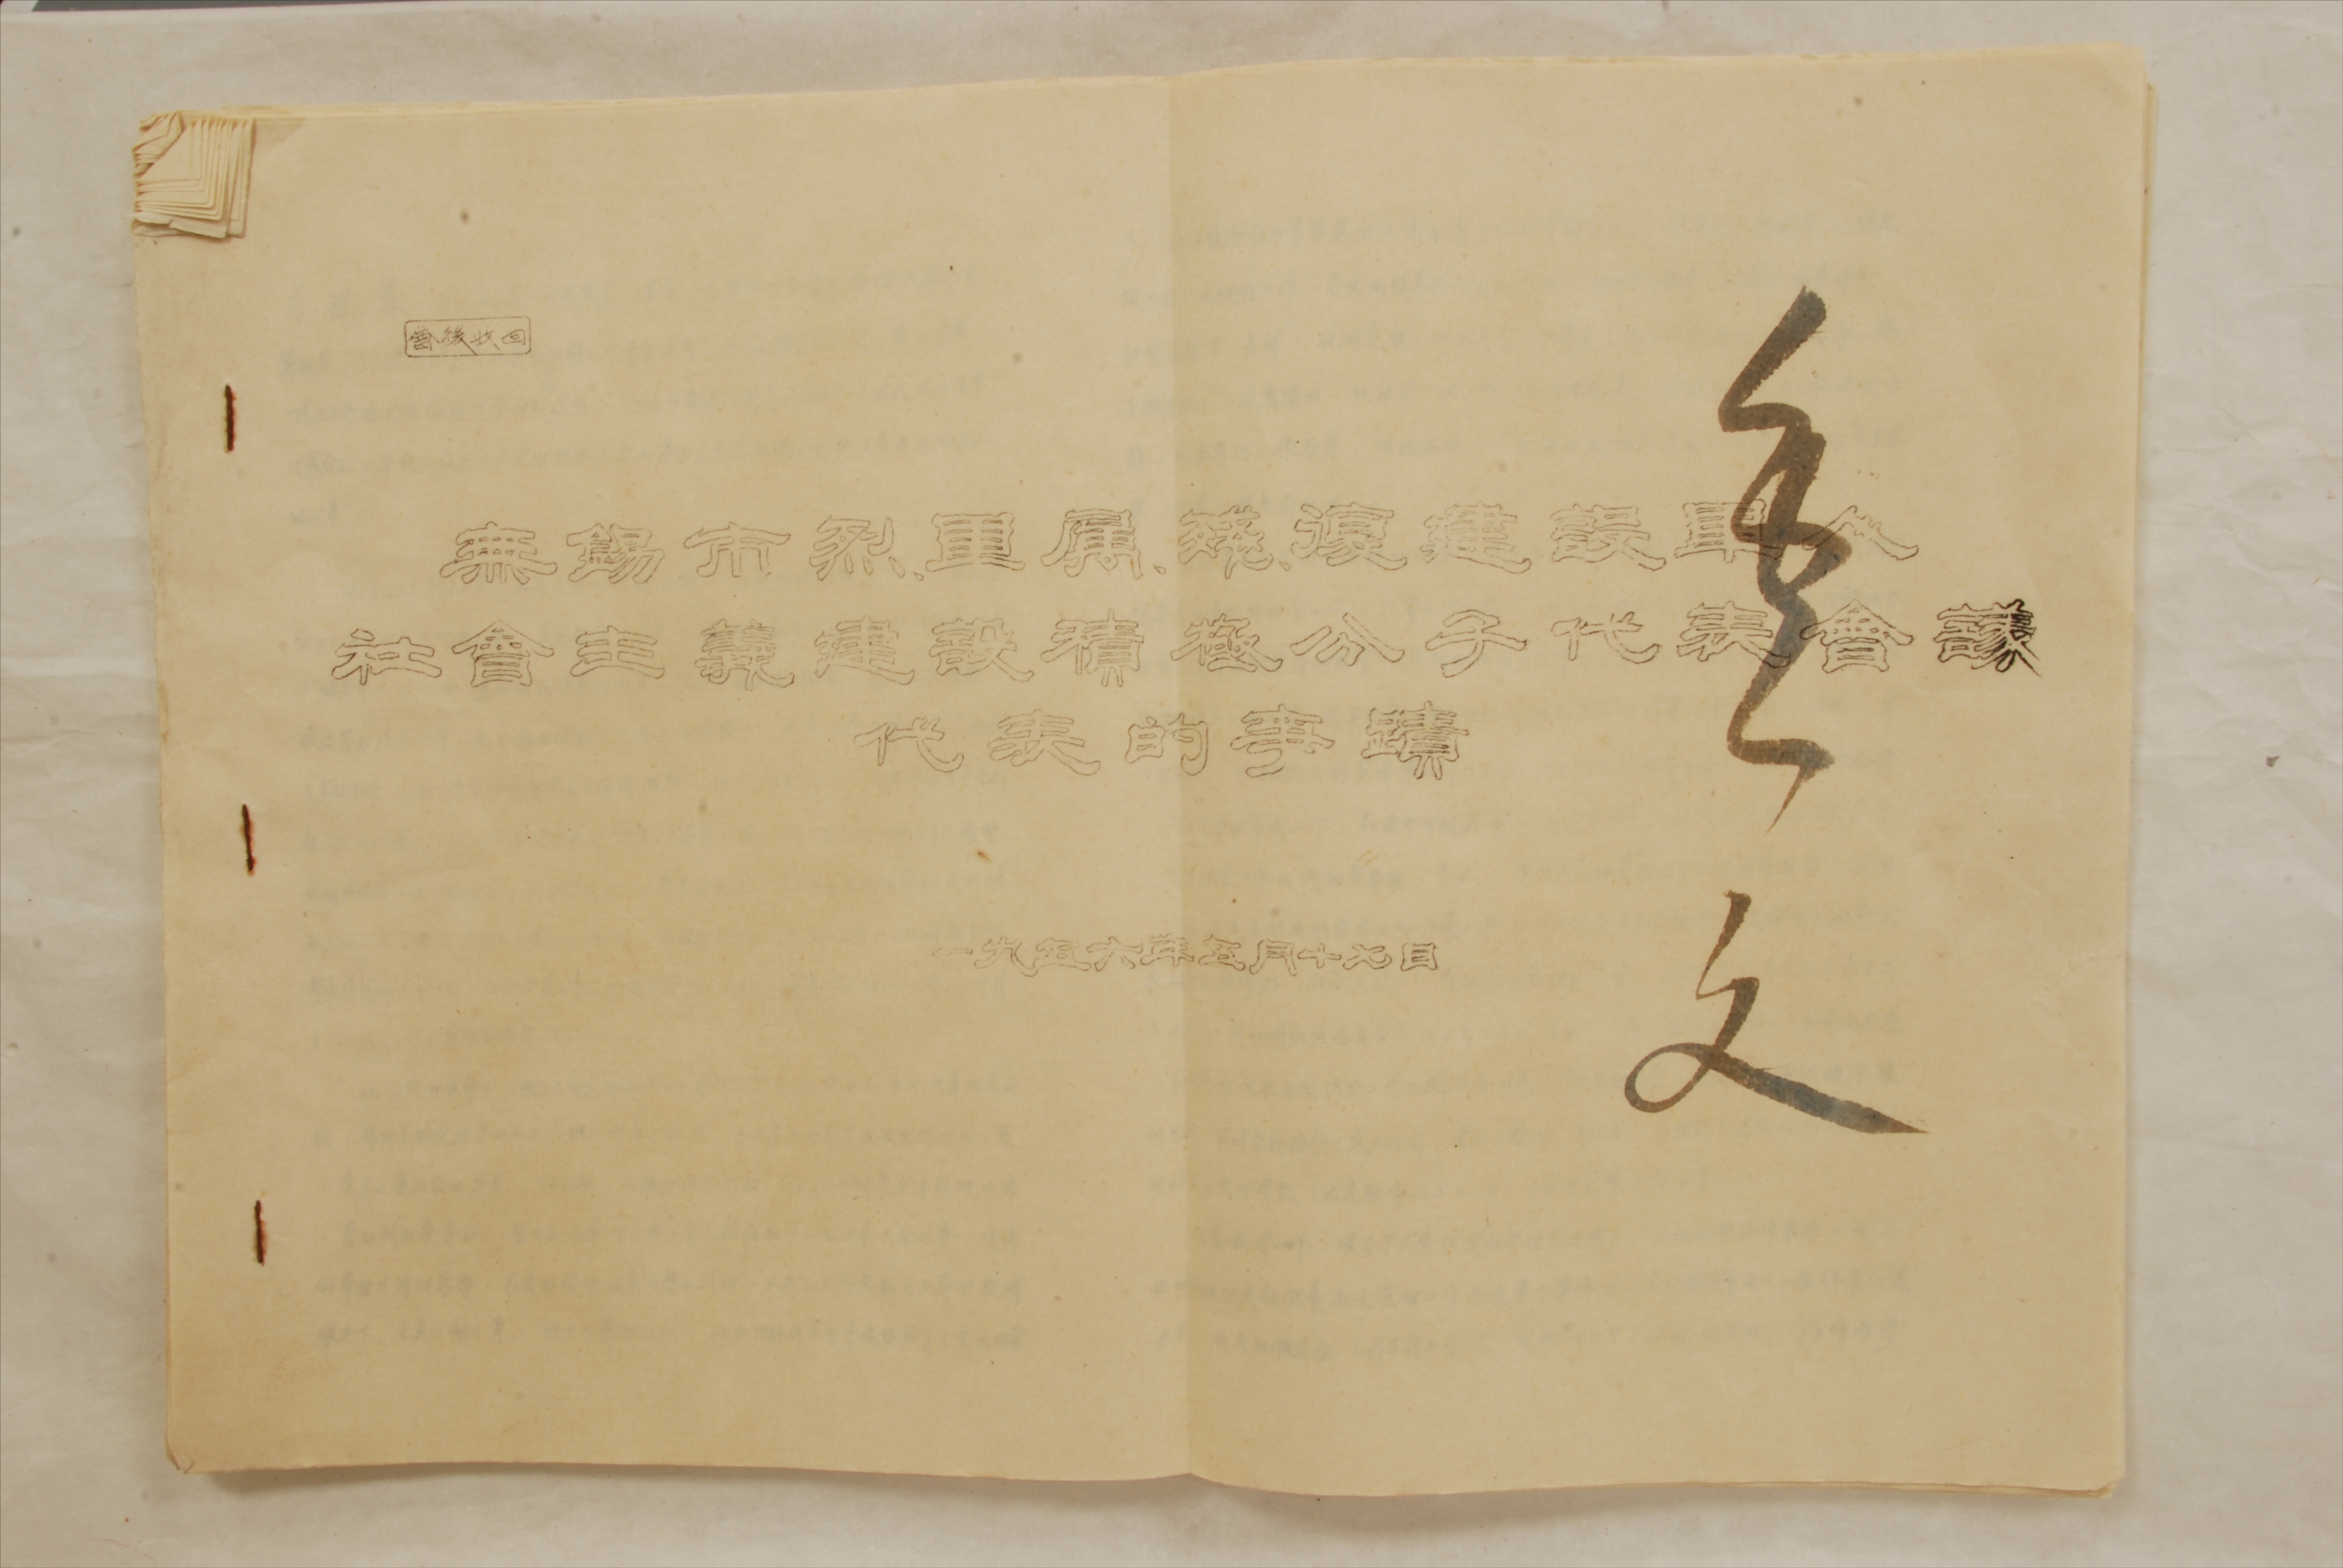 會後收回
無錫市烈、軍屬、殘、復建設軍人
社會主義建設積極分子代表會議
代表的事蹟
一九五六年五月十七日